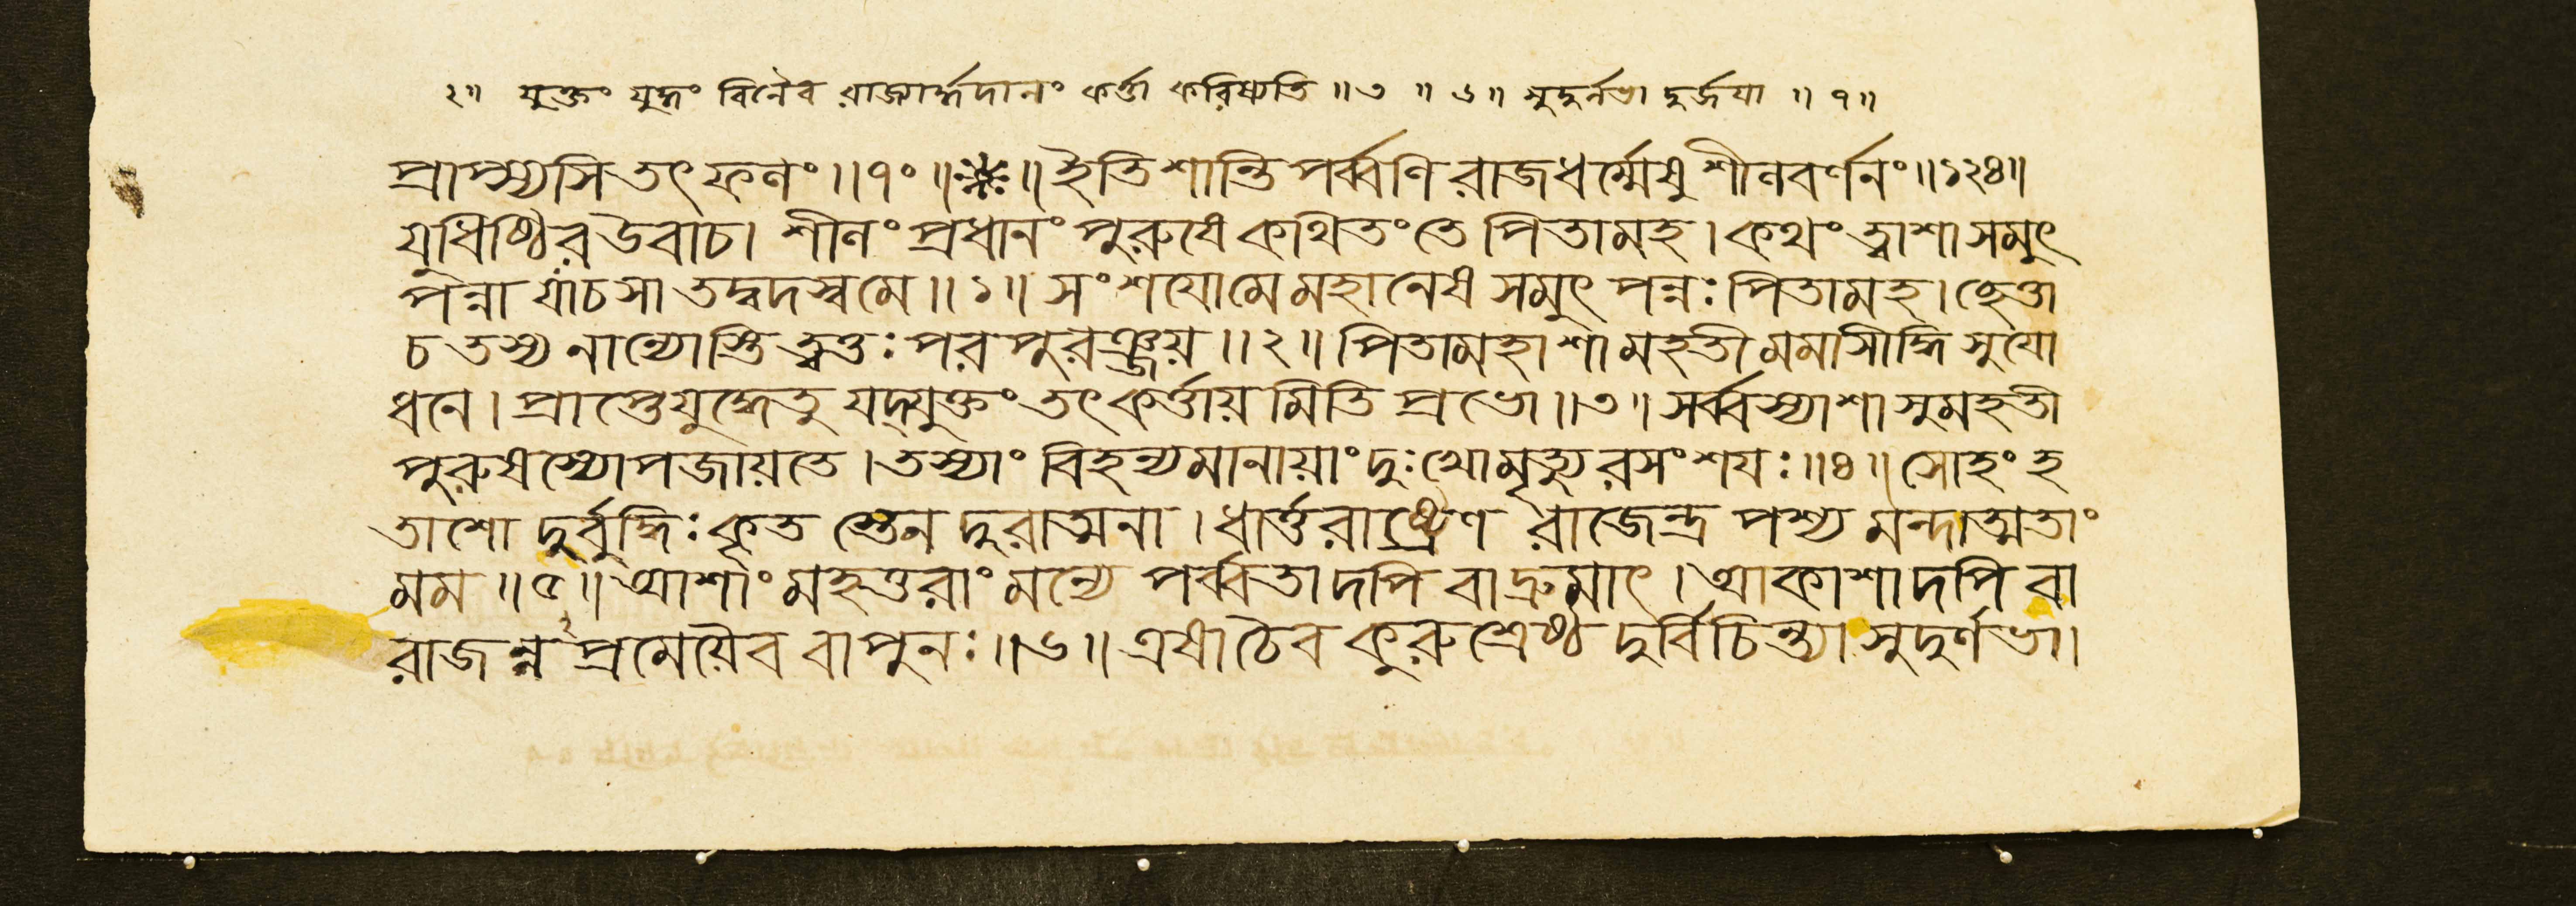 ২॥ যুক্তং যুদ্ধং বিনৈব রাজ্যার্দ্ধদানং কর্ত্তা করিষ্যতি ॥ ৩ ॥ ৬ ॥ সুদুর্লভা দুর্জয়া ॥ ৭ ॥
প্রাপ্স্যসি তৎ ফলং ॥ ৭০ ॥ ❋ ॥ ইতি শান্তি পর্ব্বণি রাজধর্ম্মেষু শীলবর্ণনং ॥ ১২৪ ॥
যুধিষ্ঠির উবাচ। শীলং প্রধানং পুরুষে কথিতং তে পিতামহ। কথং ত্বাশা সমুৎ
পন্না যা চ সা তদ্বদস্ব মে ॥ ১ ॥ সংশয়ো মে মহানেষ সমুৎপন্নঃ পিতামহ। ছেত্তা
চ তস্য নান্যোস্তি ত্বত্তঃ পরপুরঞ্জয় ॥ ২ ॥ পিতামহাশা মহতী মমাসীদ্ধি সুযো
ধনে। প্রাপ্তে যুদ্ধে তু যদ্যুক্তং তৎ কর্ত্তায়মিতি প্রভো ॥ ৩ ॥ সর্ব্বস্যাশা সুমহতী
পুরুষস্যোপজায়তে। তস্যাং বিহন্যমানায়াং দুঃখো মৃত্যুরসংশয়ঃ ॥ ৪ ॥ সোহং হ
তাশো দুর্বুদ্ধিঃ কৃতস্তেন দুরাত্মনা। ধার্ত্তরাষ্ট্রেণ রাজেন্দ্র পশ্য মন্দাত্মতাং
মম ॥ ৫ ॥ আশাং মহত্তরাং মন্যে পর্ব্বতাদপি বা দ্রুমাৎ। আকাশাদপি বা
রাজন্নপ্রমেয়ৈব বা পুনঃ ॥ ৬ ॥ এষা চৈব কুরুশ্রেষ্ঠ দুর্বিচিন্ত্যা সুদুর্লভা।